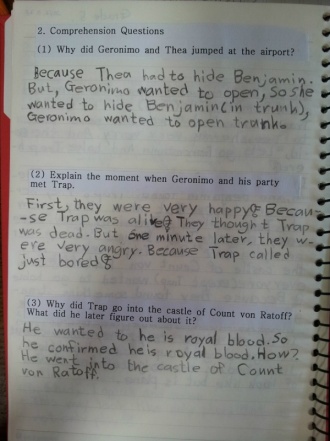 2. Comprehension Questions
(1) Why did Geronimo and Thea jumped at the airport?
Because Thea had to hide Benjamin.
But, Geronimo wanted to open, So she
wanted to hide Benjamin(in trunk),
Geronimo wanted to open trunk.
(2) Explain the moment when Geronimo and his party
met Trap.
First, they were very happy Becau-
-se Trap was alive They thought Trap
was dead. But one minute later, they w-
ere very angry. Because Trap called
just bored
(3) Why did Trap go into the castle of Count von Ratoff?
What did he later figure out about it?
He wanted to he is royal blood. So
he confirmed he is royal blood. How?
He went into the castle of Count
von Ratoff.